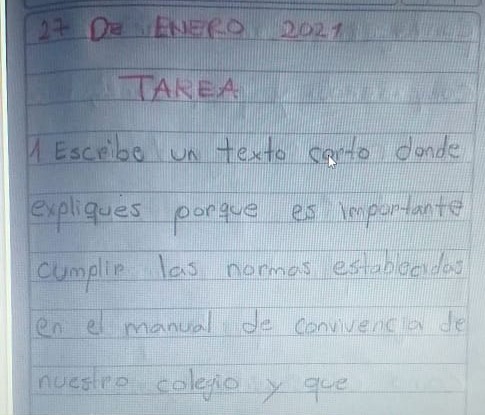 27 De ENERO 2021
TAREA
1 Escribe un texto corto donde
expliques porque es importante
cumplir las normas establecidas
en el manual de convivencia de
nuestro colegio y que